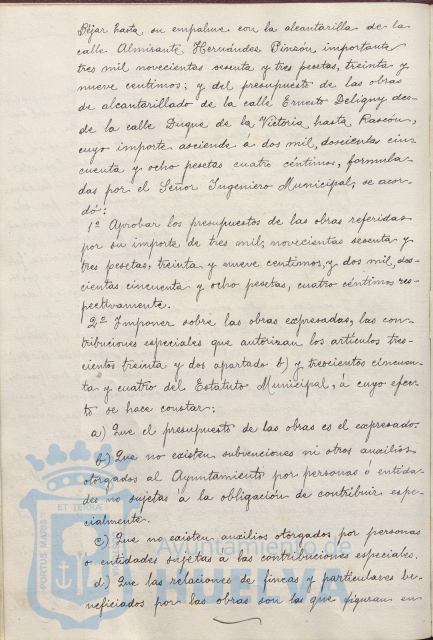 Béjar hasta su empalme con la alcantarilla de la
calle Almirante Hernández Pinzón importante
tres mil novecientas sesenta y tres pesetas, treinta y
nueve centimos; y del presupuesto de las obras
de alcantarillado de la calle Ernesto Deligny des-
de la calle Duque de la Victoria, hasta Rascón,
cuyo importe asciende á dos mil, doscientas cin-
cuenta y ocho pesetas cuatro céntimos, formula-
das por el Señor Ingeniero Municipal, se acor-
dó:
1º Aprobar los presupuestos de las obras referidas
por su importe de tres mil, novecientas sesenta y
tres pesetas, treinta y nueve centimos, y dos mil, dos-
cientas cincuenta y ocho pesetas, cuatro céntimos res-
pectivamente.
2º Imponer sobre las obras expresadas, las con-
tribuciones especiales que autorizan los artículos tres-
cientos treinta y dos apartado b) y trescientos cincuen-
ta y cuatro del Estatuto Municipal, á cuyo efec-
to se hace constar:
a) Que el presupuesto de las obras es el expresado.
b) Que no existen subvenciones ni otros auxilios
otorgados al Ayuntamiento por personas ó entida-
des no sujetas á la obligación de contribuir espe-
cialmente.
c) Que no existen auxilios otorgados por personas
o entidades sujetas a las contribuciones especiales.
d) Que las relaciones de fincas y particulares be-
neficiados por las obras son las que figuran en
PORTUS MARIS
ET TERRÆ
Ayuntamiento de
HUELVA